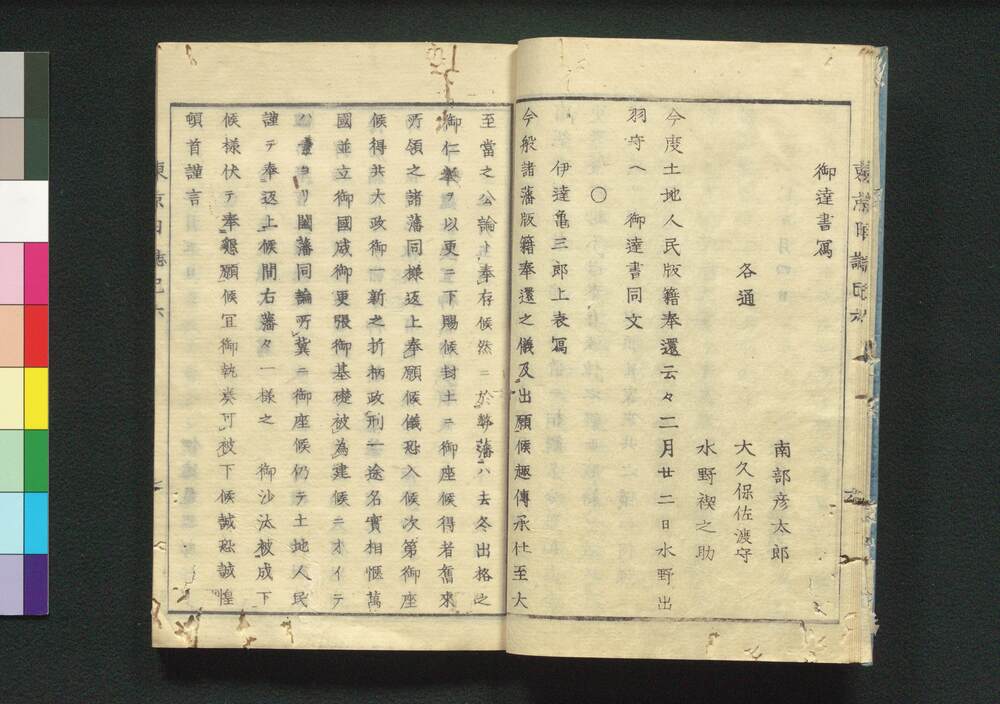 御達書寫
各通
南部彦太郎
大久保佐渡守
水野禊之助
今度土地人民版籍奉還云々二月廿二日水野出
羽守ヘ 御達書同文
○
伊達亀三郎上表寫
今般諸藩版籍奉還之儀及出願候趣傳承仕至大
至當之公論ト奉存候然ニ於弊藩ハ去冬出格之
御仁挙ヲ以更ニ下賜候封土ニ御座候得者奮來
所領之諸藩同様返上奉願候儀恐入候次第御座
候得共大政御一新之折柄政刑一途名實相愜萬
國並立御國威御更張御基礎被為建候ニオイテ
ハ ヨリ闔藩同論所冀ニ御座候仍テ土地人民
謹テ奉返上候間右藩々一様之 御沙汰被成下
候様伏テ奉懇願候冝御執奏可被下候誠恐誠惶
頓首謹言
東京日誌巳六